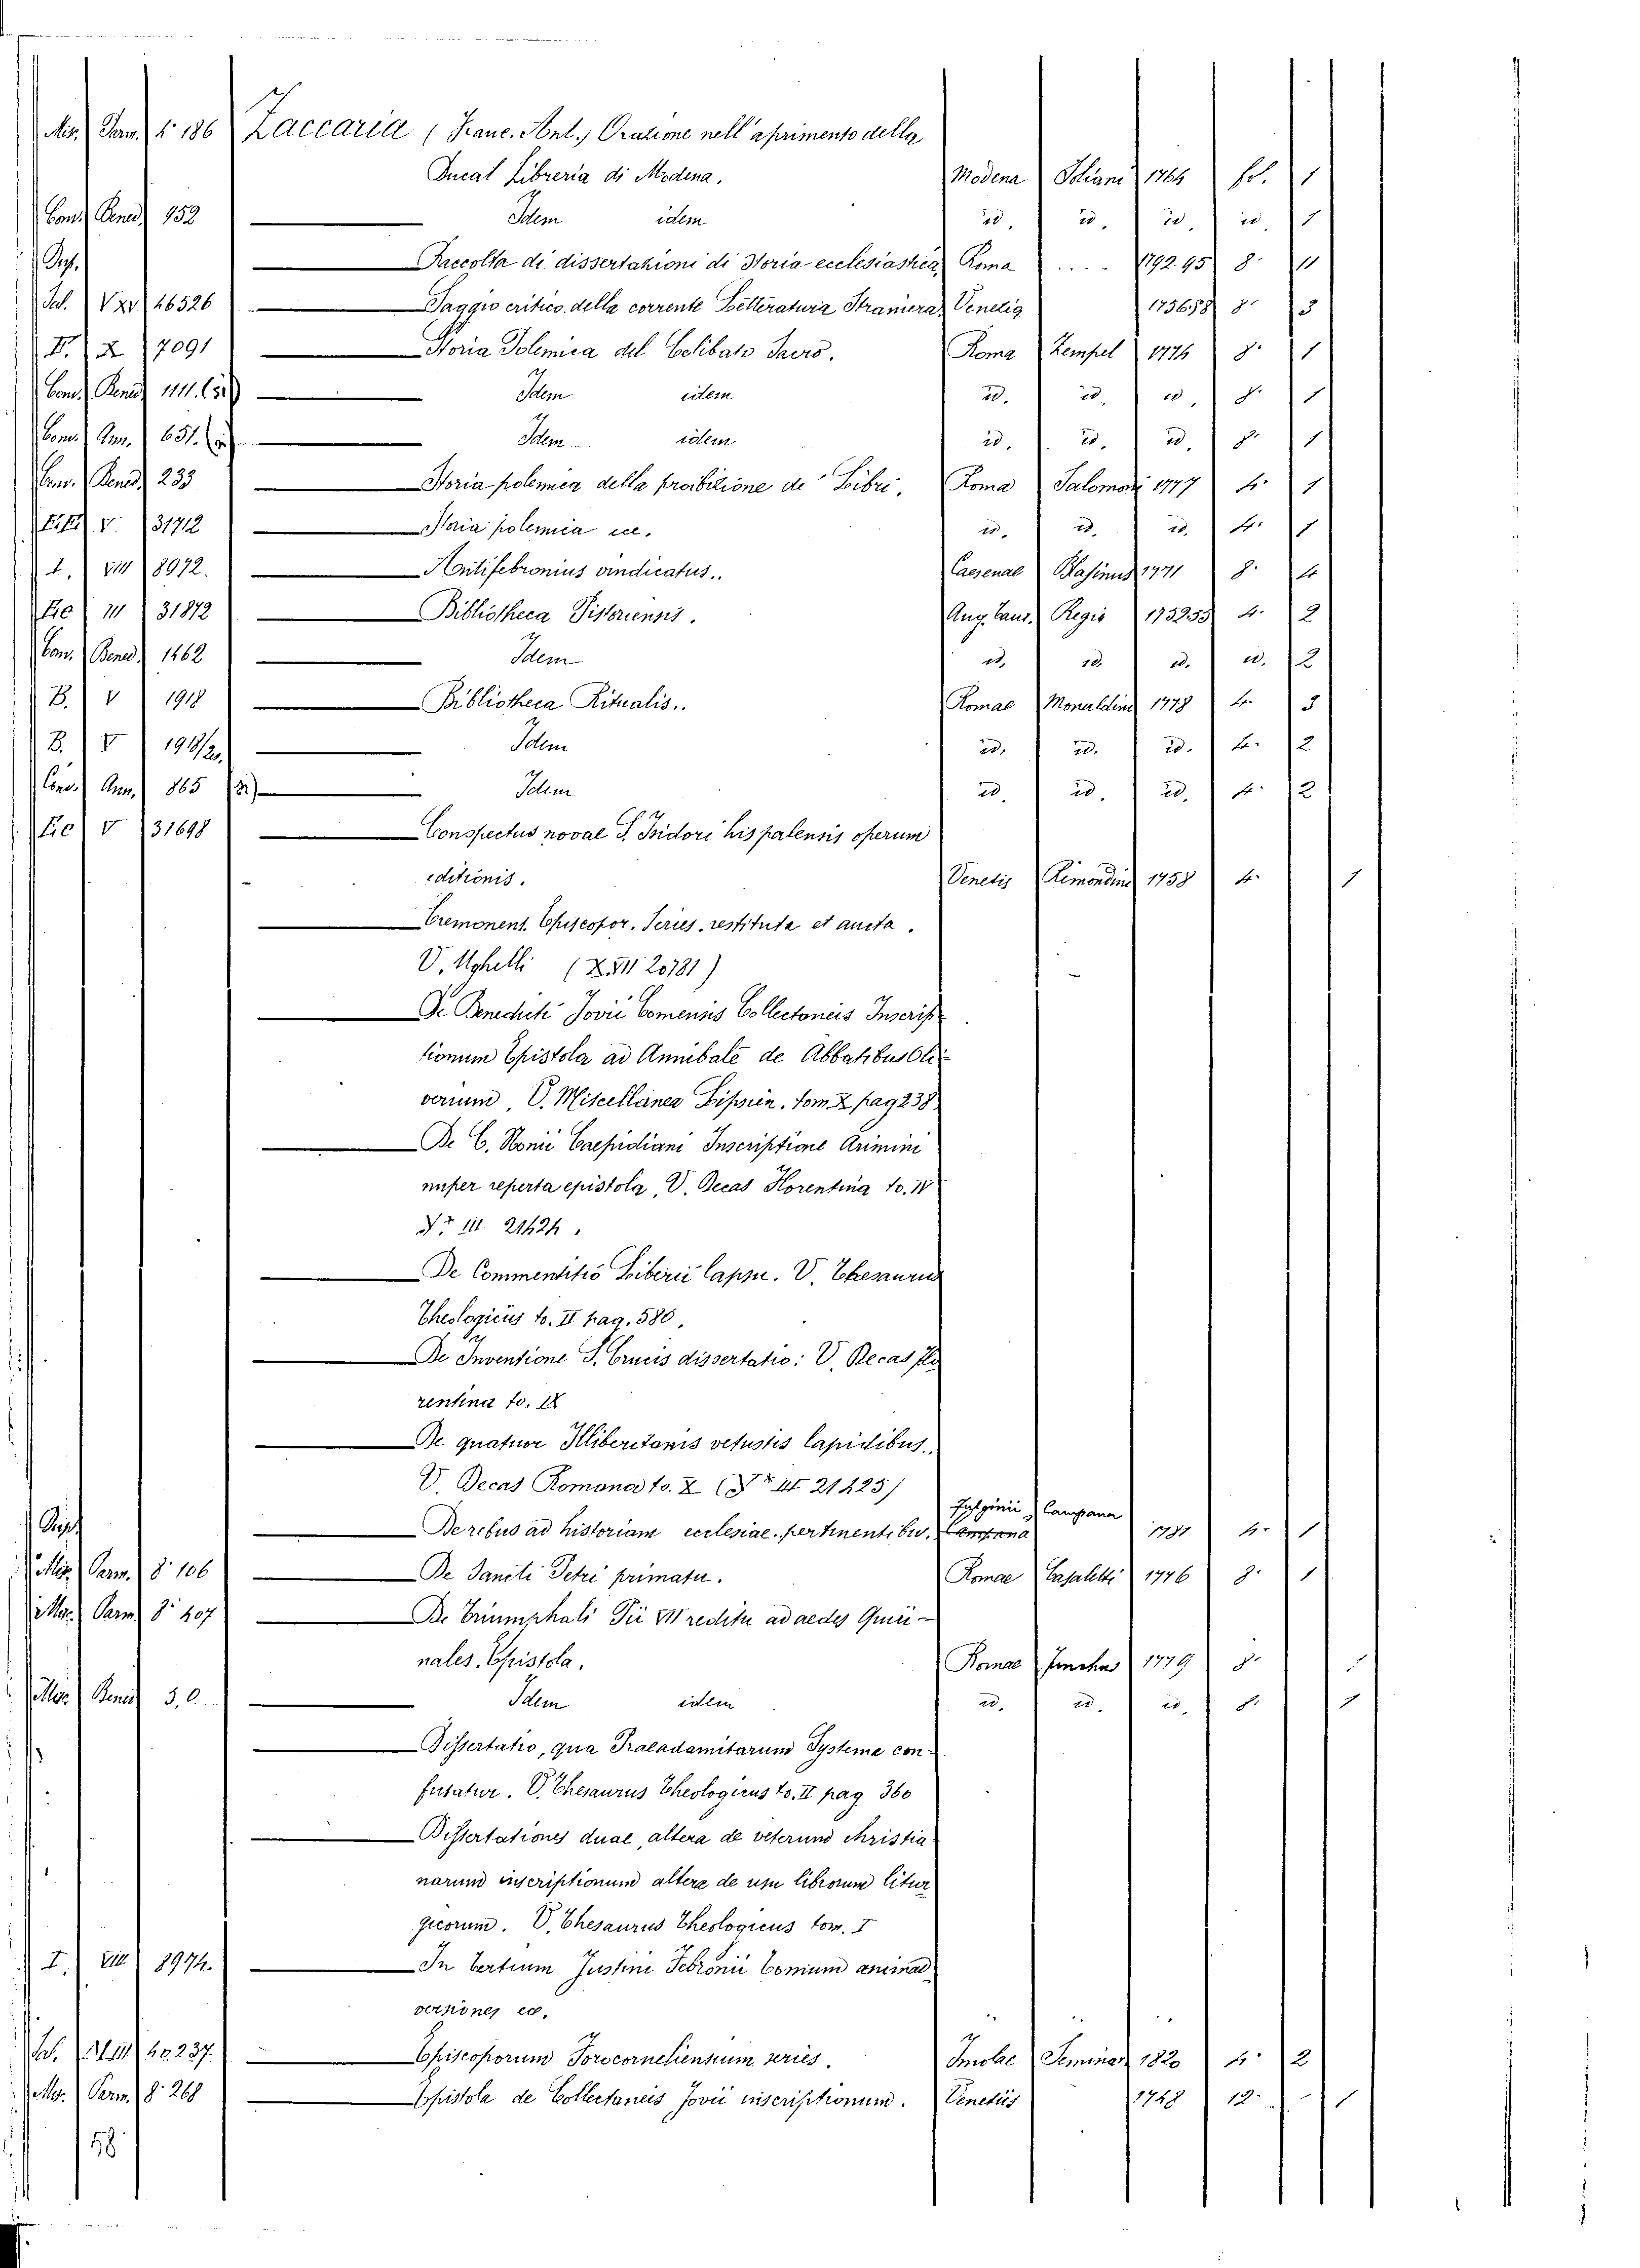 Mis. Parm. 4° 186 Zaccaria (Franc. Ant.) Orazione nell' aprimento della
Ducal Libreria di Modena. Modena Soliani 1764 fol. 1
Conv. Bened. 952 Idem idem id. id. id. id. 1
Raccolta di dissertazioni di Storia ecclesiastica Roma .... 1792.95 8° 11
Pal. V XV 46526 Saggio critico della corrente Letteratura Straniera Venezia 175658 8° 3
X 17091 Storia Polemica del Celibato Sacro. Roma Zempel 1774 8° 1
Conv. Bened. 1111. Idem idem id. id. id. 8° 1
Conv. Ann. 651. Idem idem id. id. id. 8° 1
Conv. Bened. 233 Storia polemica della proibizione de' Libri. Roma Salomoni 1777 4° 1
V 31712 Storia polemica ec. id. id. id. 4° 1
I. VIII 8972. Antifebronius vindicatus.. Caesenae Blasinus 1771 8° 4
31872 Bibliotheca Pistoriensis. Aug. Taur. Regio 175255 4° 2
Conv. Bened. 1462 Idem id. id. id. id. 2
B. V 1918 Bibliotheca Ritualis.. Romae Monaldini 1778 4° 3
B. V 1918/20. Idem id. id. id. 4° 2
Conv. Ann. 865 Idem id. id. id. 4° 2
V 31698 Conspectus novae S. Isidori hispalensis operum
editionis. Venetiis Remondini 1758 4° 1
Cremonens. Episcopor. Series, restituta et aucta.
V. Ughelli 20781)
De Benedicti Jovii Comensis Collectoneis Inscrip
tionum Epistola ad Annibale de Abbatibus Oli
verium, V. Miscellanea Lipsien. tom. X pag 238
De C. Nonii Caepidiani Inscriptione Arimini
nuper reperta epistola, V. Decas Florentina to. IV
III 21424.
De Commentitio Liberii lapsu. V. Thesaurus
Theologicus to. II pag. 580.
De Inventione S. Crucis dissertatio: V. Decas Flo
rentina to. IX
De quatuor Illiberitanis vetustis lapidibus..
V. Decas Romana to. X 21425)
De rebus ad historiam ecclesiae pertinentibus. Campana Fulginii Campana 1781 4° 1
Mis. Parm. 8° 106 De Sancti Petri primatu. Romae Casaletti 1776 8° 1
Mis. Parm. 8° 407 De Triumphali Pii VI reditu ad aedes Quiri-
nales. Epistola. Romae 1779 8° 1
Bened. Idem idem id. id. id. 8° 1
Dissertatio, qua Praeadamitarum Systema con
futatur. V. Thesaurus Theologicus to. II pag 360
Dissertationes duae, altera de veterum christia
narum inscriptionum altera de usu librorum litur
gicorum. V. Thesaurus Theologicus tom. I
I. VIII 8974. In tertium Justini Febronii tomum animad
versiones ec.
40.237. Episcoporum Forocorneliensium series. Imolae Seminar. 1820 4° 2
Mis. Parm. 8° 268 Epistola de Collectaneis Jovii inscriptionum. Venetiis 1748 12° 1
58